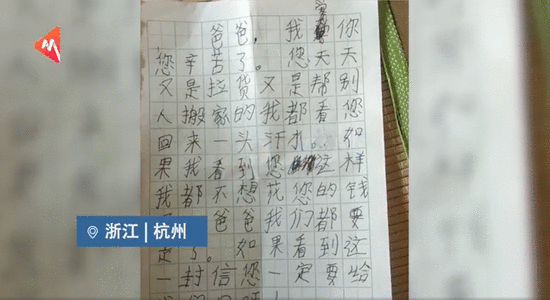 爸爸,我 你
您辛苦了。您天天
又是拉货又是帮别
人搬家的我都看您
回来一头汗水。如
果我看到您 这样
我都不想花您的钱
爸爸我们都要
走了。如果看到这
一封信您一定要给
浙江 | 杭州